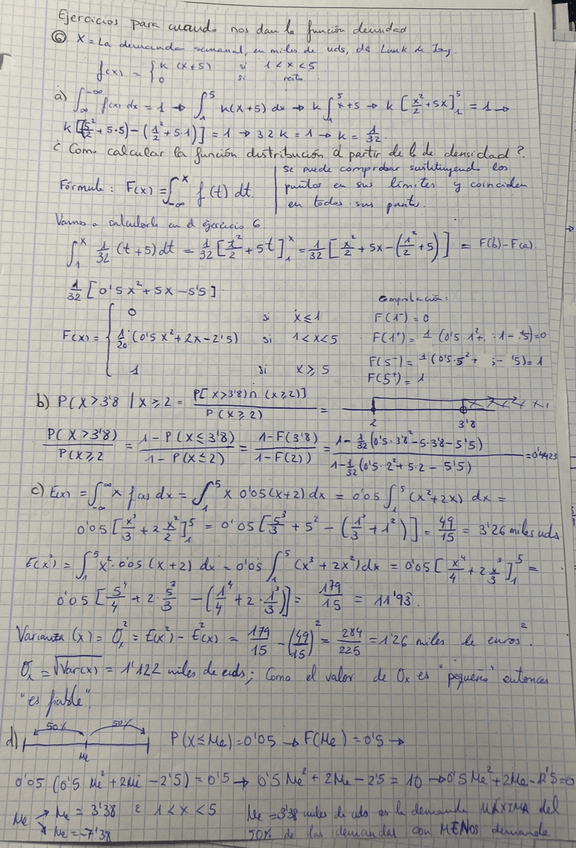 Ejercicios para cuando nos dan la función densidad
⑥ X = La demanda semanal, en miles de uds, de
f(x) = { k (x+5) si 1 < x < 5
0 si resto
a) ∫ f(x) dx = 1 → ∫₁⁵ k(x+5) dx → k ∫₁⁵ x+5 → k [x²/2 + 5x]₁⁵ = 1 →
k [(5²/2 + 5·5) - (1²/2 + 5·1)] = 1 → 32k = 1 → k = 1/32.
¿Como calcular la función distribución a partir de la de densidad?
Fórmula: F(x) = ∫₋∞ˣ f(t) dt.
se puede comprobar sustituyendo los
puntos en sus límites y coinciden
en todos sus puntos.
Vamos a calcularla en el ejercicio 6
∫₁ˣ 1/32 (t+5) dt = 1/32 [x²/2 + 5t]₁ˣ = 1/32 [x²/2 + 5x - (1²/2 + 5)] = F(b) - F(a)
1/32 [0'5x² + 5x - 5'5]
Comprobación:
F(x) = { 0 si x ≤ 1
1/20 (0'5x² + 2x - 2'5) si 1 < x < 5
1 si x ≥ 5
F(1⁻) = 0
F(1⁺) = 1 (0'5·1² + ·1 - '5) = 0
F(5⁻) = 1 (0'5·5² + - '5) = 1
F(5⁺) = 1
b) P(X > 3'8 | X ≥ 2 = P[X > 3'8) ∩ (X ≥ 2)] / P(X ≥ 2) =
2 3'8
P(X > 3'8) / P(X ≥ 2 = 1 - P(X ≤ 3'8) / 1 - P(X ≤ 2) = 1 - F(3'8) / 1 - F(2)) = 1 - 1/32 (0'5·3'8² - 5·3'8 - 5'5) / 1 - 1/32 (0'5·2² + 5·2 - 5'5) = 0'4423
c) E(x) = ∫ x f(x) dx = ∫₁⁵ x 0'05 (x+2) dx = 0'05 ∫₁⁵ (x² + 2x) dx =
0'05 [x³/3 + 2 x²/2]₁⁵ = 0'05 [5³/3 + 5² - (1³/3 + 1²)] = 49/15 = 3'26 miles uds
E(x²) = ∫₁⁵ x² · 0'05 (x+2) dx = 0'05 ∫₁⁵ (x³ + 2x²) dx = 0'05 [x⁴/4 + 2 x³/3]₁⁵ =
0'05 [5⁴/4 + 2 · 5³/3 - (1⁴/4 + 2 · 1³/3)] = 179/15 = 11'93.
Varianza (x) = σₓ² = E(x²) - E²(x) = 179/15 - (49/15)² = 284/225 = 1'26 miles de euros².
σₓ = √Var(x) = 1'122 miles de uds; Como el valor de σₓ es "pequeño" entonces
"es fiable".
50% 50%
Me
d) P(X ≤ Me) = 0'05 → F(Me) = 0'5 →
0'05 (0'5 Me² + 2Me - 2'5) = 0'5 → 0'5 Me² + 2Me - 2'5 = 10 → 0'5 Me² + 2Me - 12'5 = 0
Me Me = 3'38 ∈ 1 < x < 5
Me = -7'38
Me = 3'38 miles de uds es la demanda MÁXIMA del
50% de las demandas con MENOS demanda